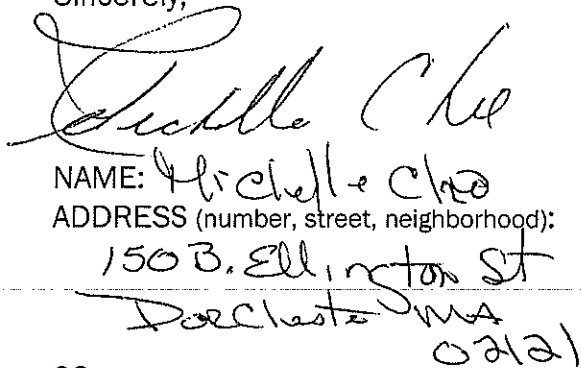 Sincerely,
Michelle Cho
NAME: Michelle Cho
ADDRESS (number, street, neighborhood):
150 B. Ellington St
Dorchester MA
02121